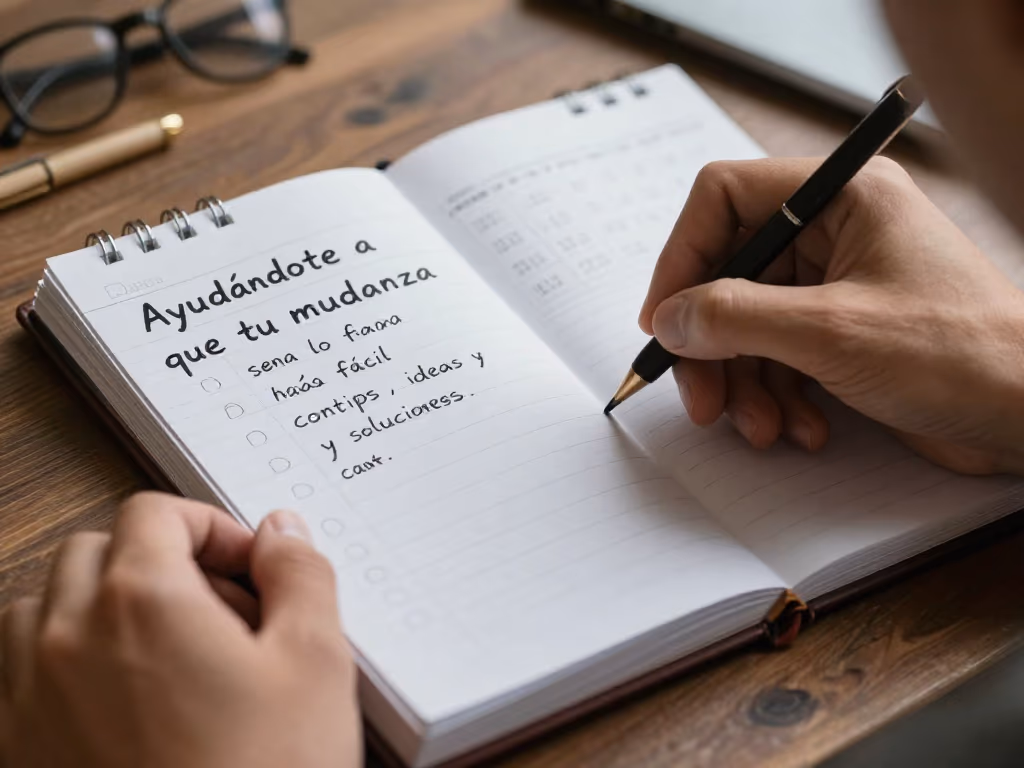 Ayudándote a
que tu mudanza
sena lo fiana
haiáa fácil
contips, ideas y
y solucioness.
cant.